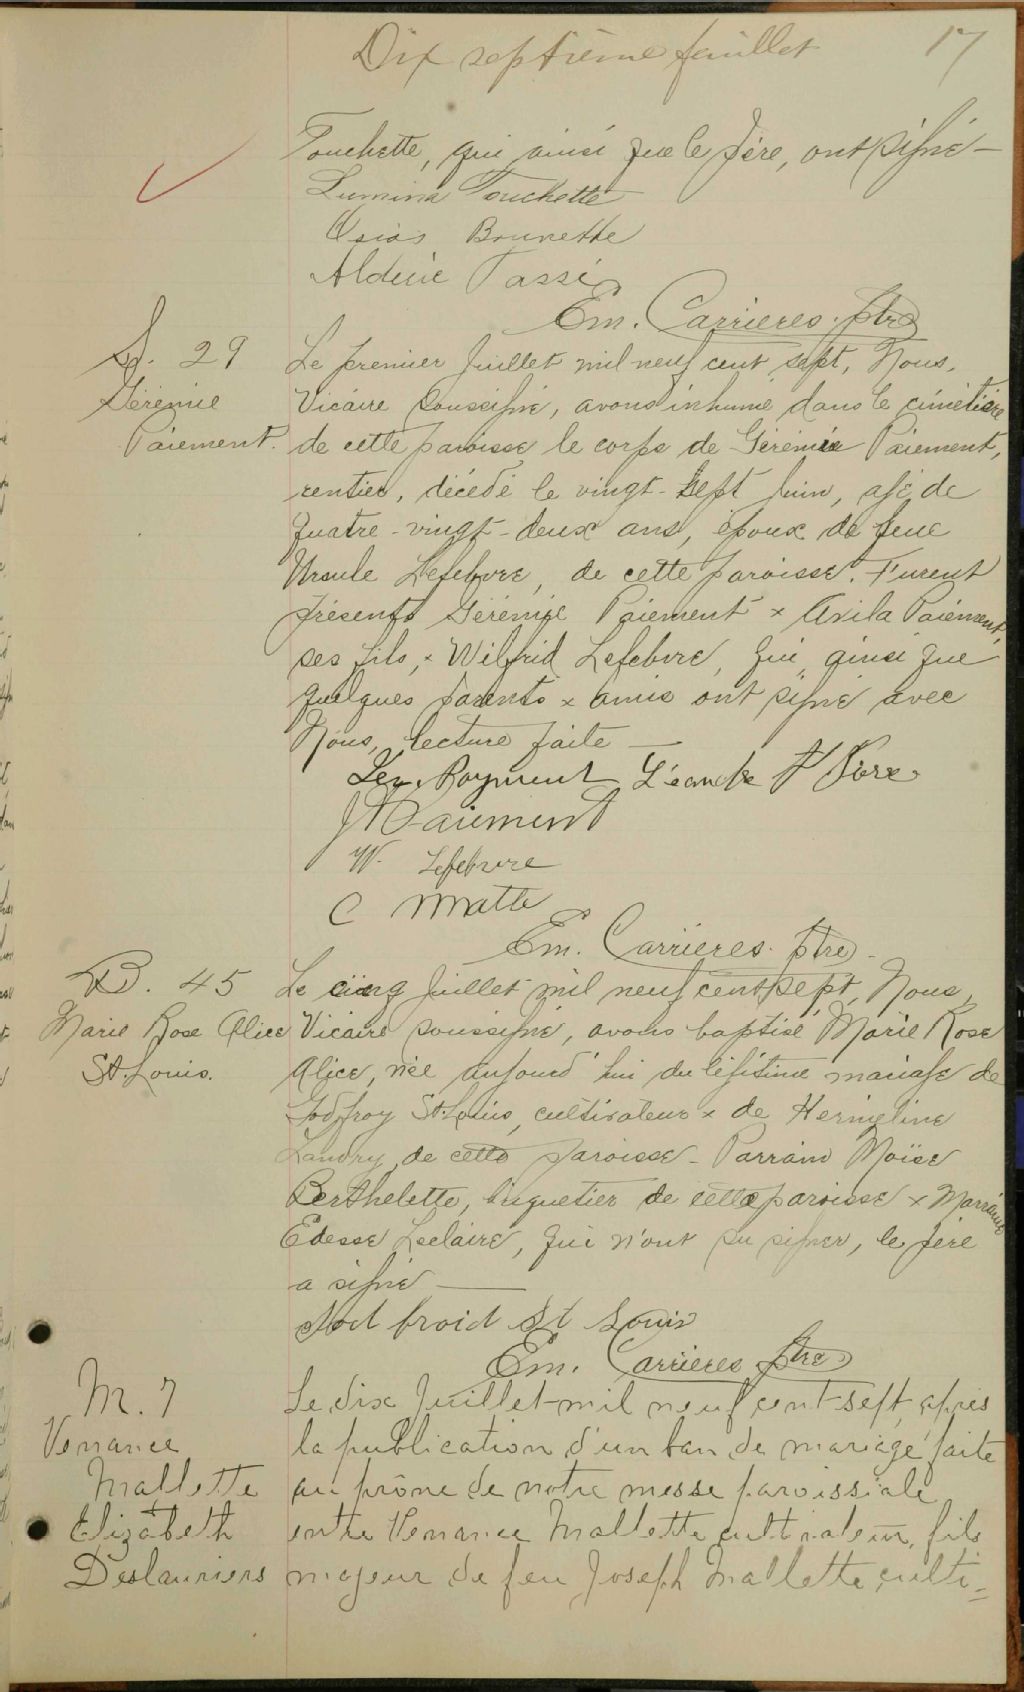 Dix septième feuillet 17
Touchette, qui ainsi que le père, ont signé —
Lumina Touchette
Osias Brunette
Alderic Tassé
Em. Carrières. ptre
S. 29
Jérémie
Paiement.
Le premier Juillet mil neuf cent sept, Nous,
Vicaire soussigné, avons inhumé dans le cimetière
de cette paroisse le corps de Jérémie Paiement,
rentier, décédé le vingt-sept Juin, agé de
quatre-vingt-deux ans, époux de feue
Ursule Lefebvre, de cette paroisse. Furent
présents Jérémie Paiement × Avila Paiement,
ses fils, × Wilfrid Lefebvre, qui, ainsi que
quelques parents × amis ont signé avec
Nous, lecture faite —
Payment Léandre
Paiement
W. Lefebvre
C Matte
Em. Carrières. ptre
B. 45
Marie Rose Alice
St. Louis.
Le cinq Juillet mil neuf cent sept, Nous,
Vicaire soussigné, avons baptisé Marie Rose
Alice, née aujourd'hui du légitime mariage de
Godfroy St. Louis, cultivateur × de Hermeline
Landry, de cette paroisse - Parrain Moïse
Berthelette, briquetier de cette paroisse × Marraine
Edesse Leclaire, qui n'ont su signer, le père
a signé —
God froid St Louis
Em. Carrières ptre
M. 7
Venance
Mallette
&
Elizabeth
Deslauriers
Le dix Juillet mil neuf cent-sept, après
la publication d'un ban de mariage, faite
au prône de notre messe paroissiale
entre Venance Mallette cultivateur, fils
majeur de feu Joseph Mallette, culti=